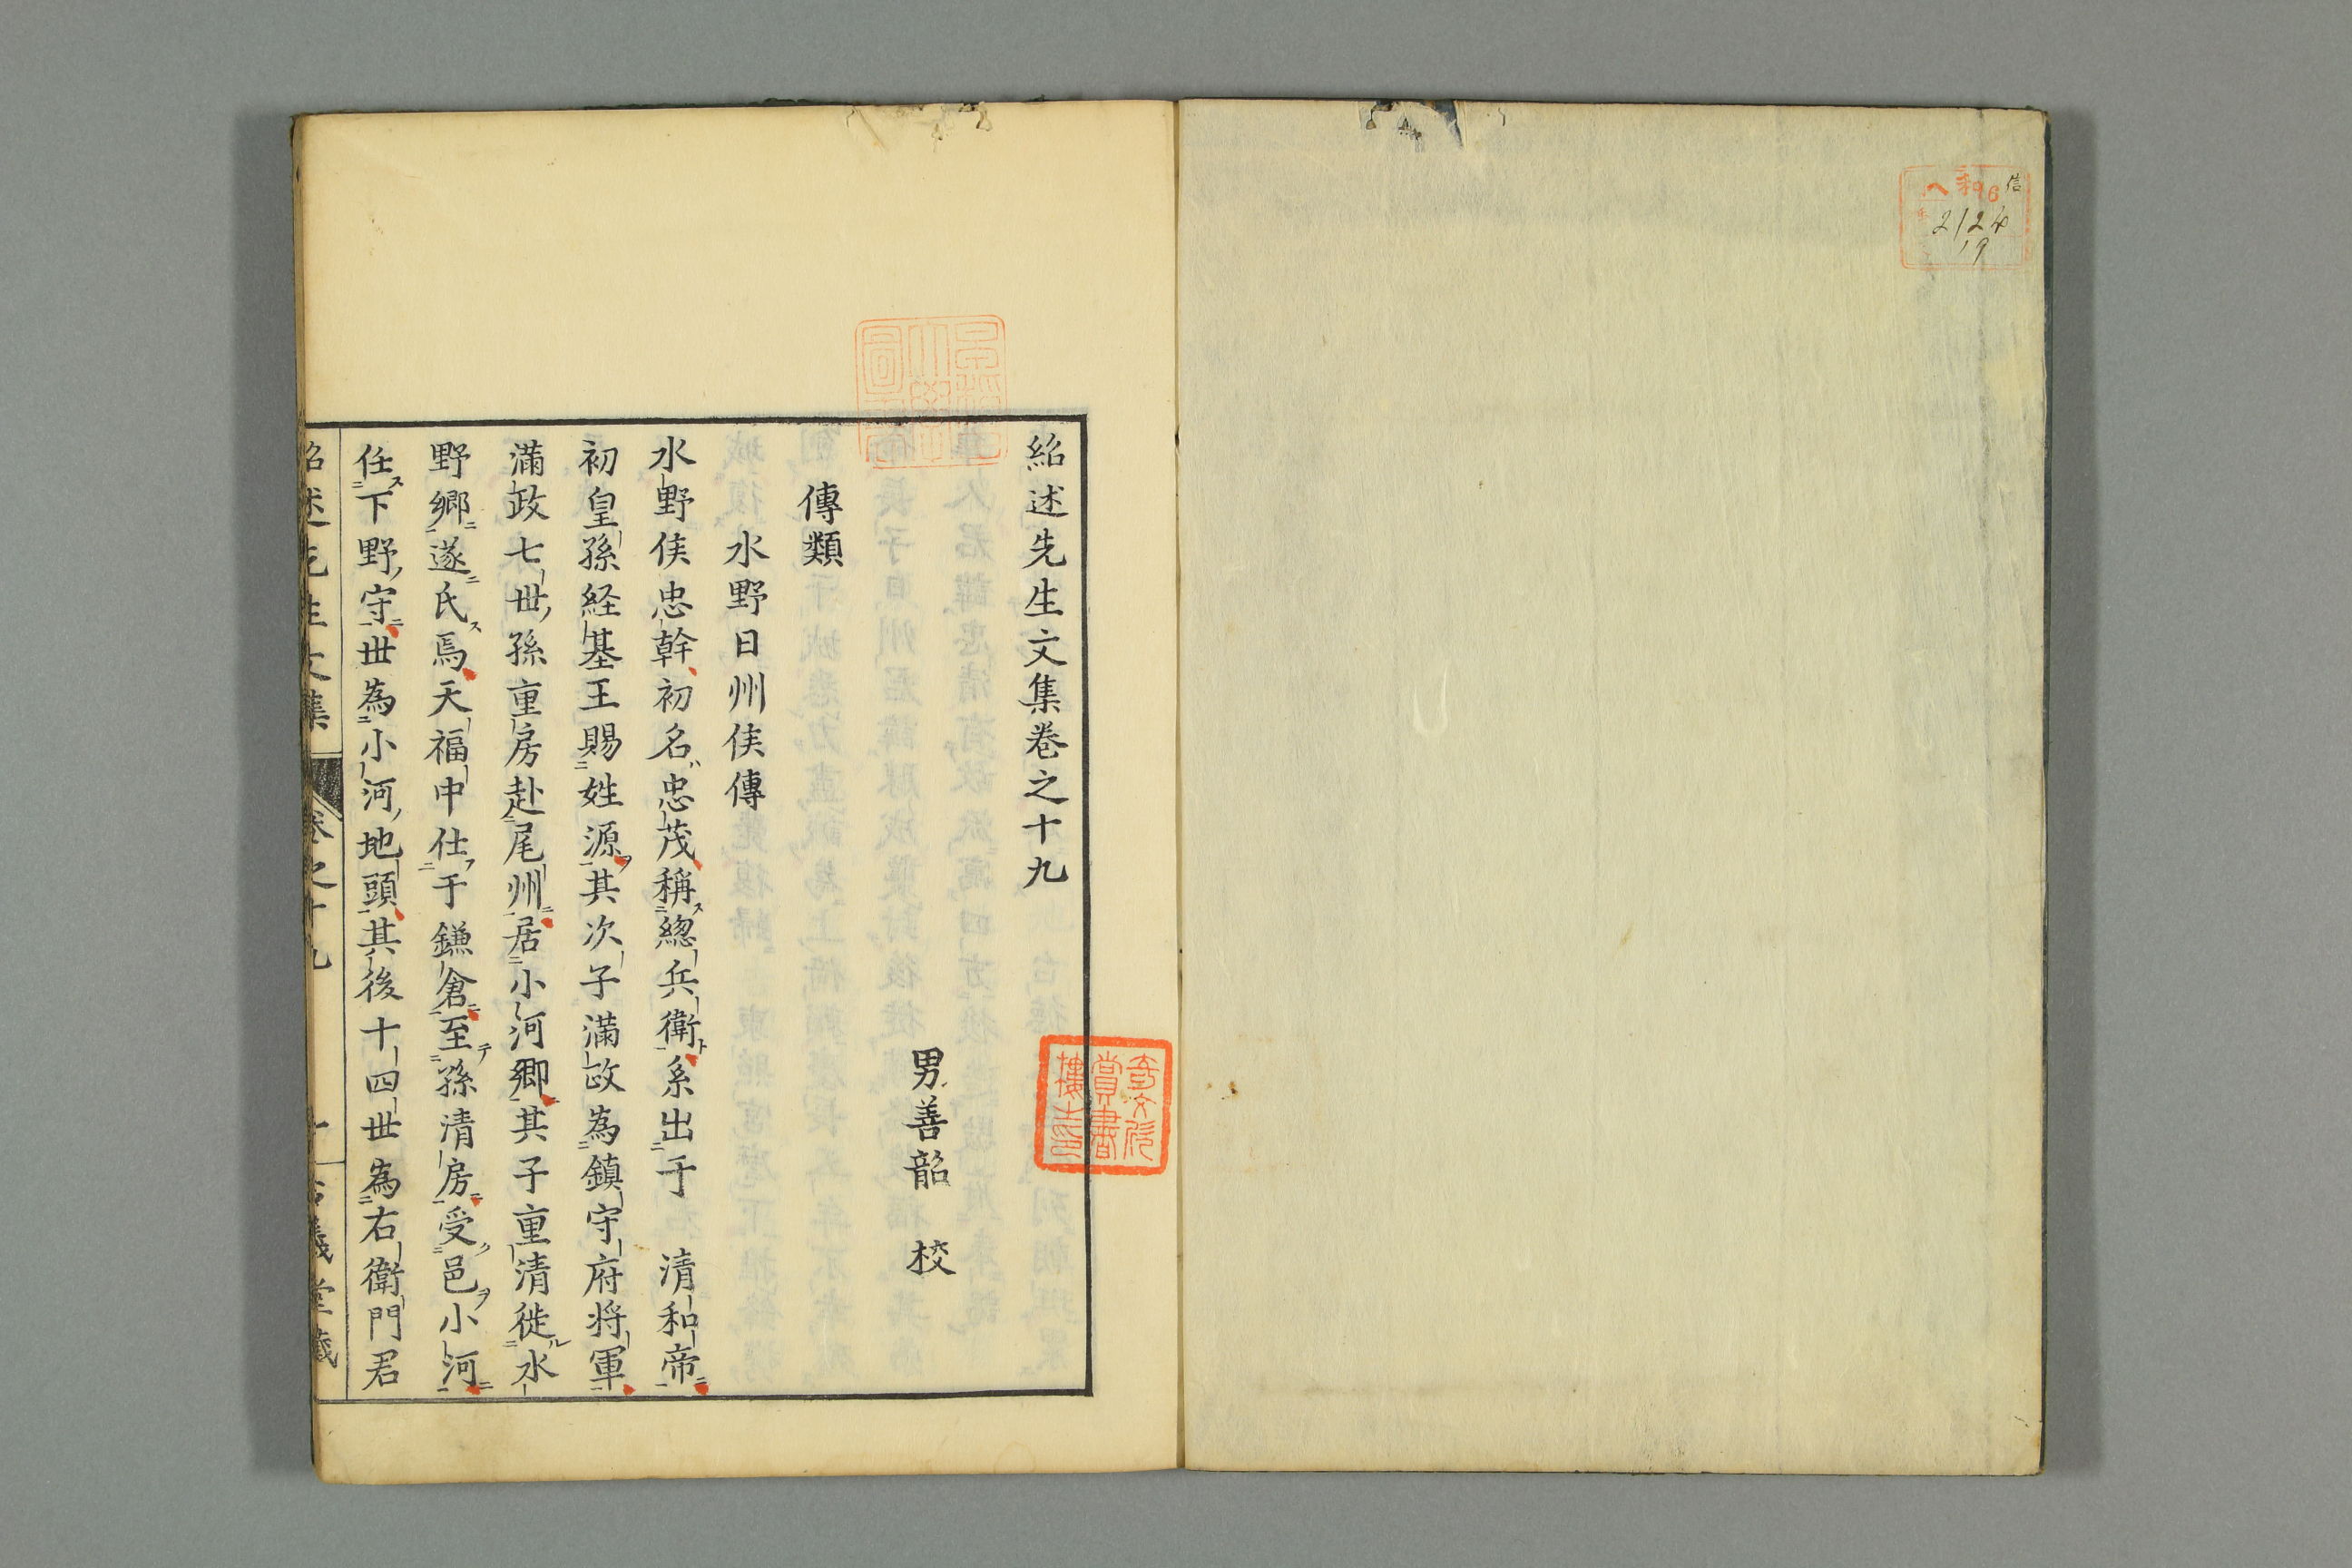 信
イ296
2124
19
紹述先生文集巻之十九
男善韶 校
傳類
水野日州侯傳
水野侯忠幹初名忠茂稱總兵衛系出于 清和帝
初皇孫経基王賜姓源其次子滿政為鎮守府将軍
滿政七世孫重房赴尾州居小河鄉其子重清徙水
野鄉遂氏焉天福中仕于鎌倉至孫清房受邑小河
任下野守世為小河地頭其後十四世為右衛門君
紹述先生文集 卷之十九 一 古義堂藏
奇文欣賞書樓之印